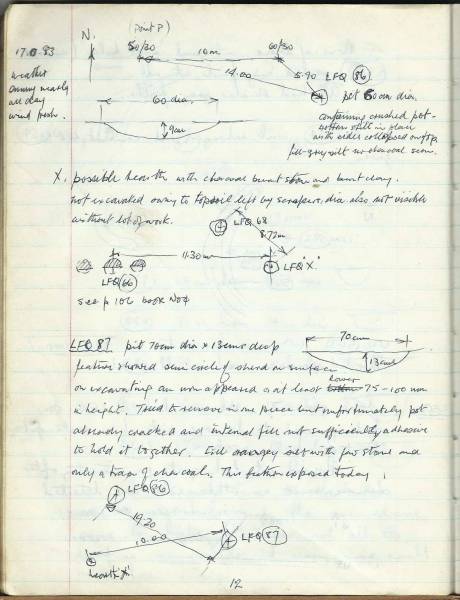 17.8.83
weather
sunny nearly
all day
wind fresh.
N.
(Point P)
50/30
10m
60/30
14.00
5.90
LFQ 86
pit 60cm dia.
containing crushed pot-
bottom still in place
with sides collapsed on top
fill-grey silt no charcoal seen.
60 dia.
9cm
X. possible hearth with charcoal burnt stone and burnt clay.
not excavated owing to topsoil left by scraper, dia also not visible
without lot of work.
LFQ 68
8.72m
11.30m
LFQ 'X'
LFQ 66
see p 106 book No 4
LFQ 87 pit 70cm dia x 13cms deep
70cm
13cms
feature showed semi circle of sherd on surface
on excavating an urn appeared is at least lower 75-100 mm
in height. Tried to remove in one piece but unfortunately pot
already cracked and internal fill not sufficiently adhesive
to hold it together. Fill orangey silt with few stones and
only a trace of charcoal. This feature exposed today
LFQ 86
19.20
10.00
LFQ 87
hearth 'X'
12